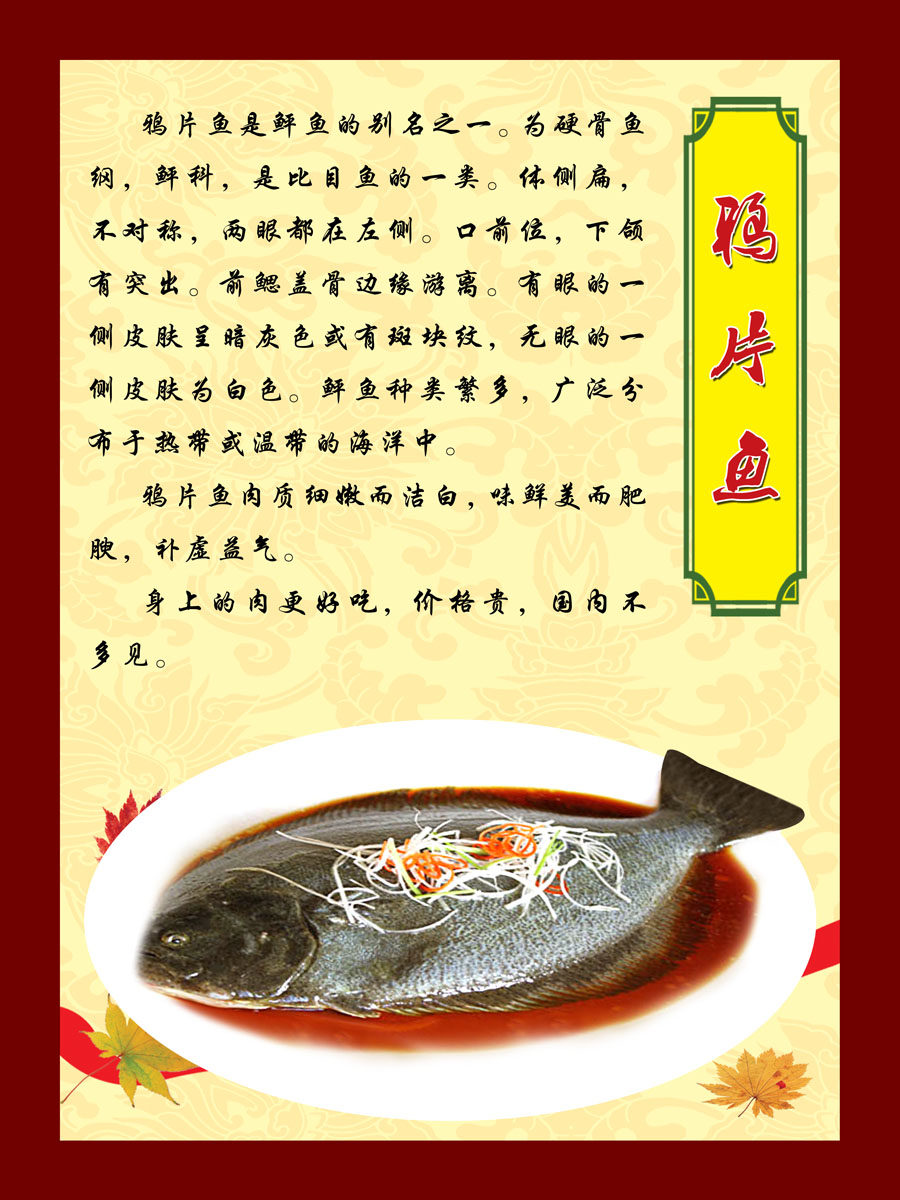 鸦片鱼
鸦片鱼是鲆鱼的别名之一。为硬骨鱼
纲，鲆科，是比目鱼的一类。体侧扁，
不对称，两眼都在左侧。口前位，下颌
有突出。前鳃盖骨边缘游离。有眼的一
侧皮肤呈暗灰色或有斑块纹，无眼的一
侧皮肤为白色。鲆鱼种类繁多，广泛分
布于热带或温带的海洋中。
鸦片鱼肉质细嫩而洁白，味鲜美而肥
腴，补虚益气。
身上的肉更好吃，价格贵，国内不
多见。